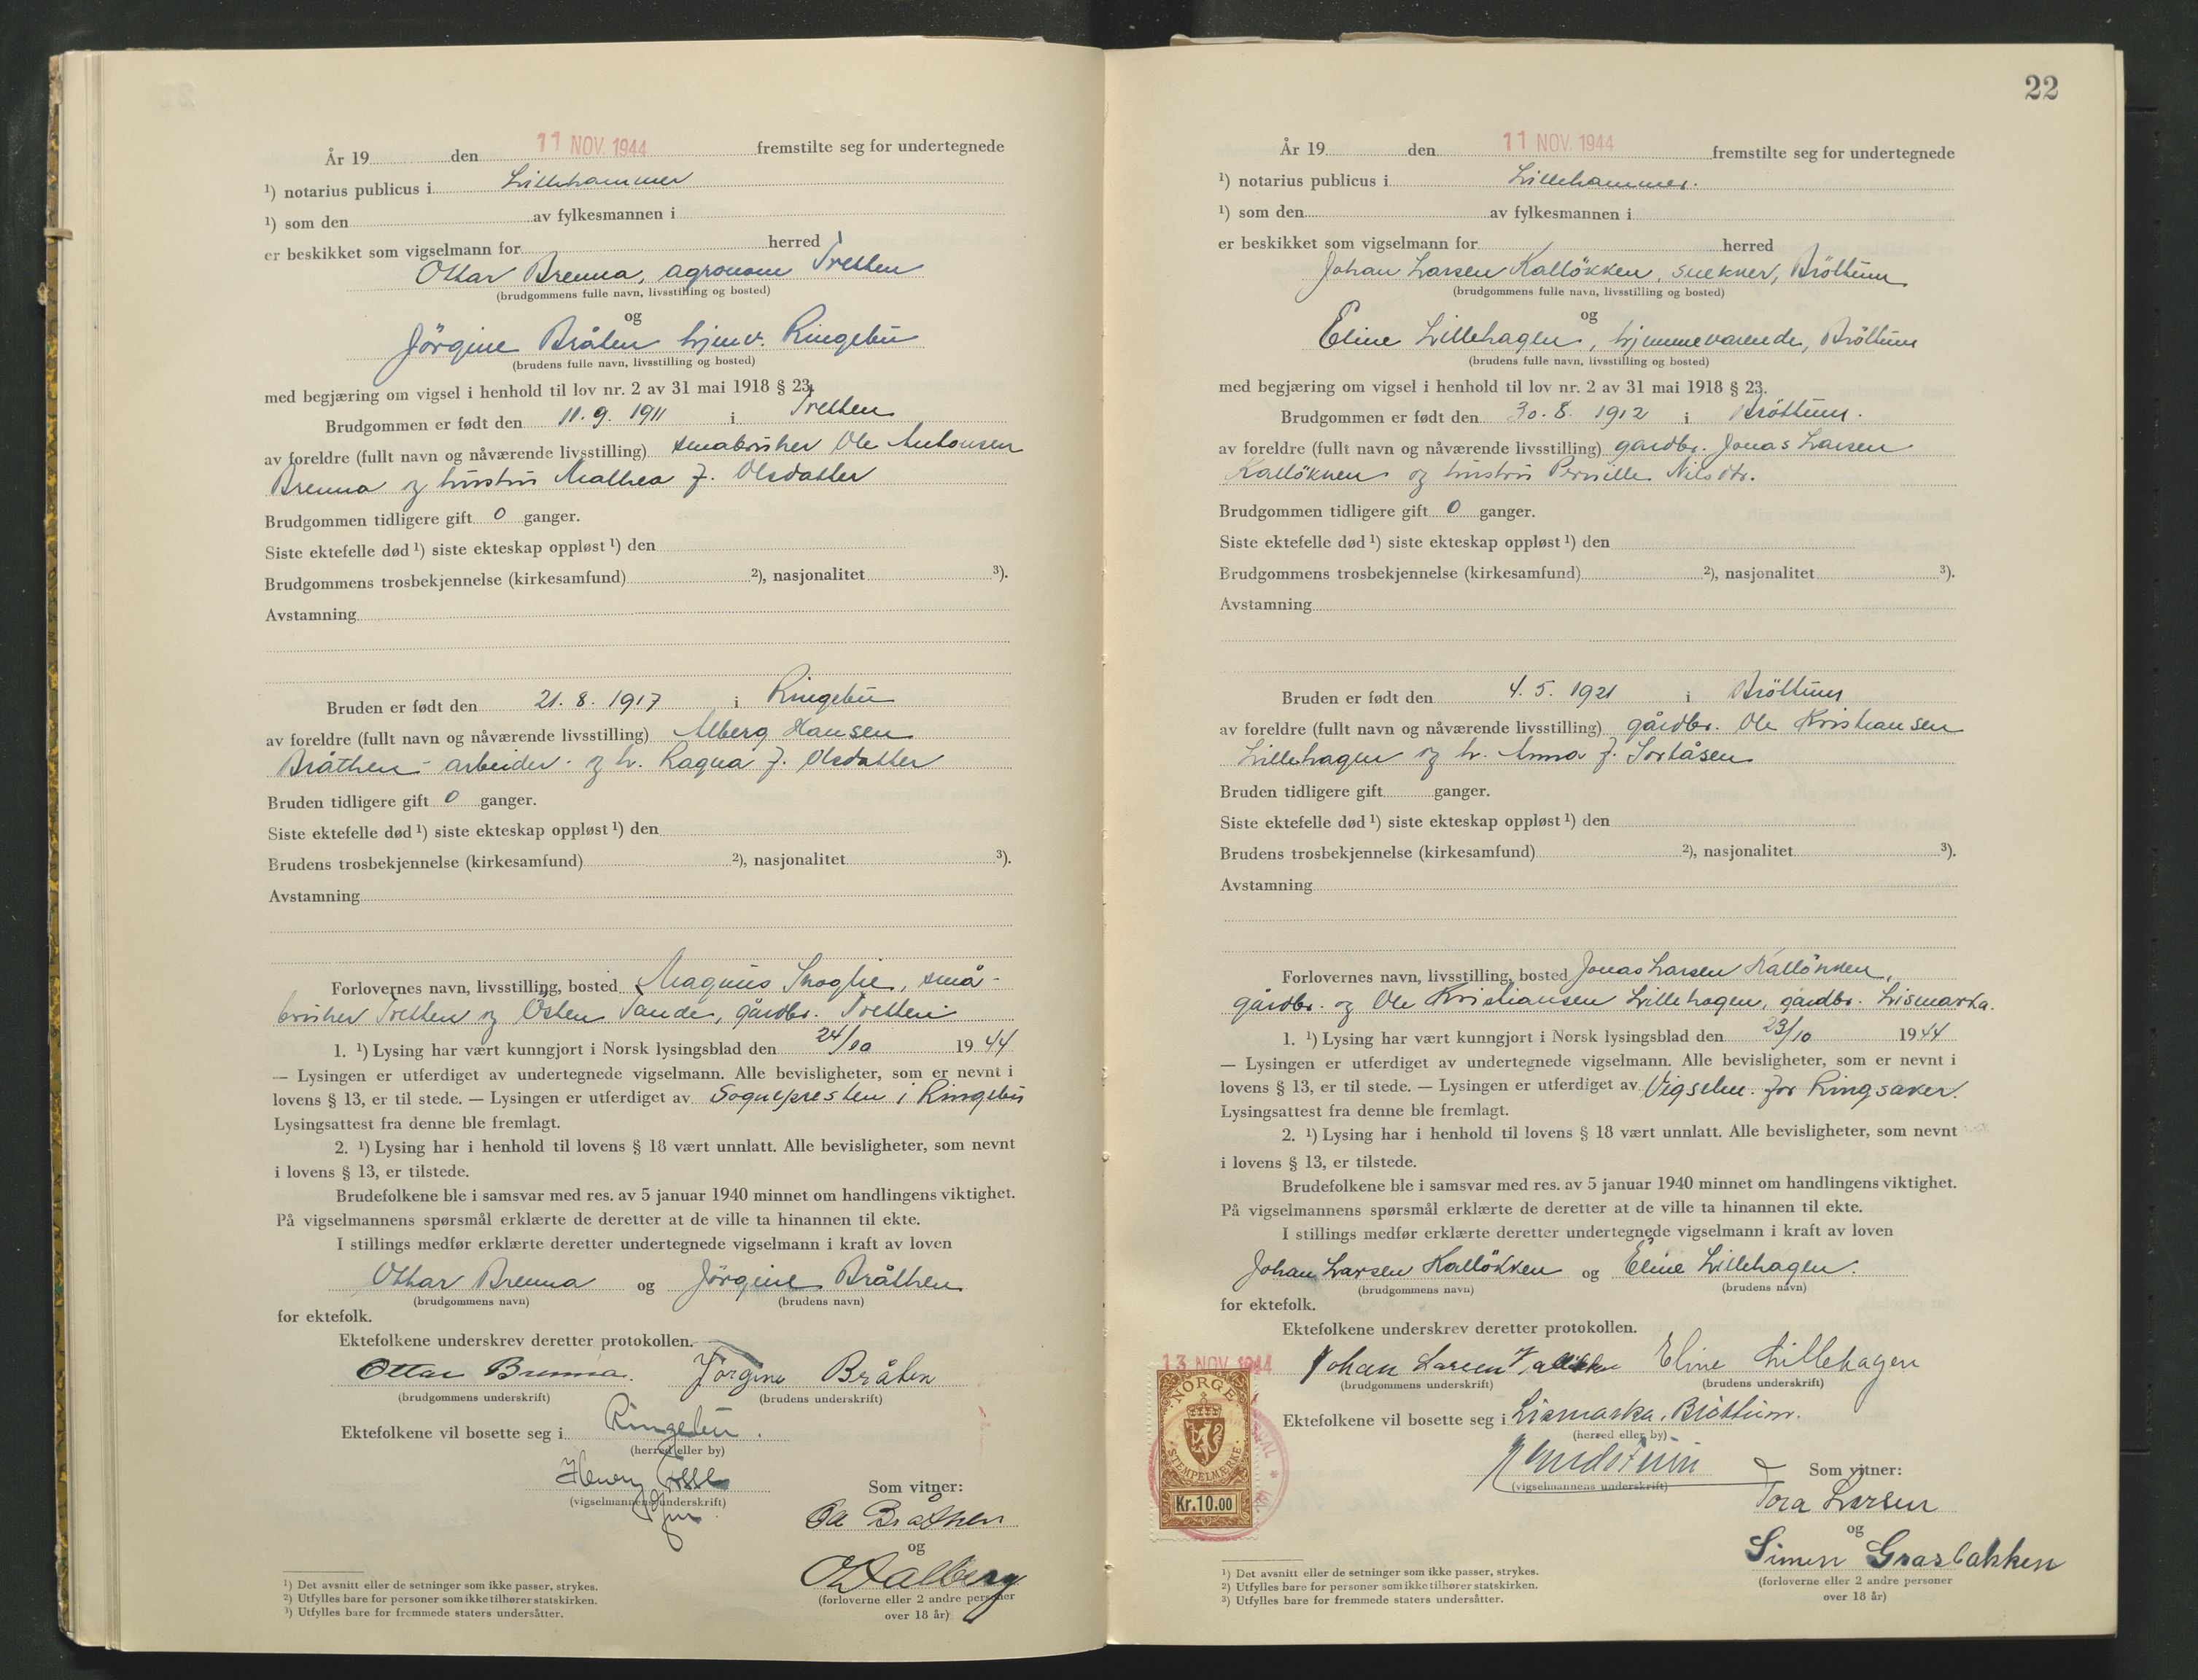 År 19 den 11 NOV. 1944 fremstilte seg for undertegnede
¹) notarius publicus i Lillehammer
¹) som den av fylkesmannen i
er beskikket som vigselmann for herred
Ottar Brenna, agronom Tretten
(brudgommens fulle navn, livsstilling og bosted)
og
Jörgine Bråten hjemv. Ringebu
(brudens fulle navn, livsstilling og bosted)
med begjæring om vigsel i henhold til lov nr. 2 av 31 mai 1918 § 23.
Brudgommen er født den 11. 9. 1911 i Tretten
av foreldre (fullt navn og nåværende livsstilling) småbruker Ole Antonsen
Brenna og hustru Mathea f. Olsdatter
Brudgommen tidligere gift 0 ganger.
Siste ektefelle død ¹) siste ekteskap oppløst ¹) den
Brudgommens trosbekjennelse (kirkesamfund) ²), nasjonalitet ³).
Avstamning
Bruden er født den 21. 8. 1917 i Ringebu
av foreldre (fullt navn og nåværende livsstilling) Alberg Hansen
Bråthen - arbeider - og h. Ragna f. Olsdatter
Bruden tidligere gift 0 ganger.
Siste ektefelle død ¹) siste ekteskap oppløst ¹) den
Brudens trosbekjennelse (kirkesamfund) ²), nasjonalitet ³).
Avstamning
Forlovernes navn, livsstilling, bosted Magnus Skoglie, små-
bruker Tretten og Östen Sande, gårdbr. Tretten
1. ¹) Lysing har vært kunngjort i Norsk lysingsblad den 24/10 1944
— Lysingen er utferdiget av undertegnede vigselmann. Alle bevisligheter, som er nevnt i
lovens § 13, er til stede. — Lysingen er utferdiget av Sognepresten i Ringebu
Lysingsattest fra denne ble fremlagt.
2. ¹) Lysing har i henhold til lovens § 18 vært unnlatt. Alle bevisligheter, som nevnt
i lovens § 13, er tilstede.
Brudefolkene ble i samsvar med res. av 5 januar 1940 minnet om handlingens viktighet.
På vigselmannens spørsmål erklærte de deretter at de ville ta hinannen til ekte.
I stillings medfør erklærte deretter undertegnede vigselmann i kraft av loven
Ottar Brenna og Jörgine Bråthen
(brudgommens navn) (brudens navn)
for ektefolk.
Ektefolkene underskrev deretter protokollen.
Ottar Brenna. Jörgine Bråten
(brudgommens underskrift) (brudens underskrift)
Ektefolkene vil bosette seg i Ringebu.
(herred eller by)
Henry
(vigselmannens underskrift)
Som vitner:
Ola Bråthen
og
(forloverne eller 2 andre personer
over 18 år)
¹) Det avsnitt eller de setninger som ikke passer, strykes.
²) Utfylles bare for personer som ikke tilhører statskirken.
³) Utfylles bare for fremmede staters undersåtter.
22
År 19 den 11 NOV. 1944 fremstilte seg for undertegnede
¹) notarius publicus i Lillehammer.
¹) som den av fylkesmannen i
er beskikket som vigselmann for herred
Johan Larsen Kallökken, snekker, Bröttum
(brudgommens fulle navn, livsstilling og bosted)
og
Eline Lillehagen, hjemmeværende, Bröttum
(brudens fulle navn, livsstilling og bosted)
med begjæring om vigsel i henhold til lov nr. 2 av 31 mai 1918 § 23.
Brudgommen er født den 30. 8. 1912 i Bröttum.
av foreldre (fullt navn og nåværende livsstilling) gårdbr. Jonas Larsen
Kallökken og hustru Pernille Nilsdtr.
Brudgommen tidligere gift 0 ganger.
Siste ektefelle død ¹) siste ekteskap oppløst ¹) den
Brudgommens trosbekjennelse (kirkesamfund) ²), nasjonalitet ³).
Avstamning
Bruden er født den 4. 5. 1921 i Bröttum
av foreldre (fullt navn og nåværende livsstilling) gårdbr. Ole Kristiansen
Lillehagen og h. Anna f. Sortåsen
Bruden tidligere gift ganger.
Siste ektefelle død ¹) siste ekteskap oppløst ¹) den
Brudens trosbekjennelse (kirkesamfund) ²), nasjonalitet ³).
Avstamning
Forlovernes navn, livsstilling, bosted Jonas Larsen Kallökken,
gårdbr. og Ole Kristiansen Lillehagen, gårdbr. Lismarka.
1. ¹) Lysing har vært kunngjort i Norsk lysingsblad den 23/10 1944
— Lysingen er utferdiget av undertegnede vigselmann. Alle bevisligheter, som er nevnt i
lovens § 13, er til stede. — Lysingen er utferdiget av Vigselm. for Ringsaker.
Lysingsattest fra denne ble fremlagt.
2. ¹) Lysing har i henhold til lovens § 18 vært unnlatt. Alle bevisligheter, som nevnt
i lovens § 13, er tilstede.
Brudefolkene ble i samsvar med res. av 5 januar 1940 minnet om handlingens viktighet.
På vigselmannens spørsmål erklærte de deretter at de ville ta hinannen til ekte.
I stillings medfør erklærte deretter undertegnede vigselmann i kraft av loven
Johan Larsen Kallökken og Eline Lillehagen.
(brudgommens navn) (brudens navn)
for ektefolk.
Ektefolkene underskrev deretter protokollen.
13 NOV 1944
Johan Larsen Kallökken Eline Lillehagen
(brudgommens underskrift) (brudens underskrift)
NORGE
STEMPELMERKE
Kr.10.00
Ektefolkene vil bosette seg i Lismarka, Bröttum.
(herred eller by)
(vigselmannens underskrift)
Som vitner:
Tora Larsen
og
Simen Grasbakken
(forloverne eller 2 andre personer
over 18 år)
¹) Det avsnitt eller de setninger som ikke passer, strykes.
²) Utfylles bare for personer som ikke tilhører statskirken.
³) Utfylles bare for fremmede staters undersåtter.